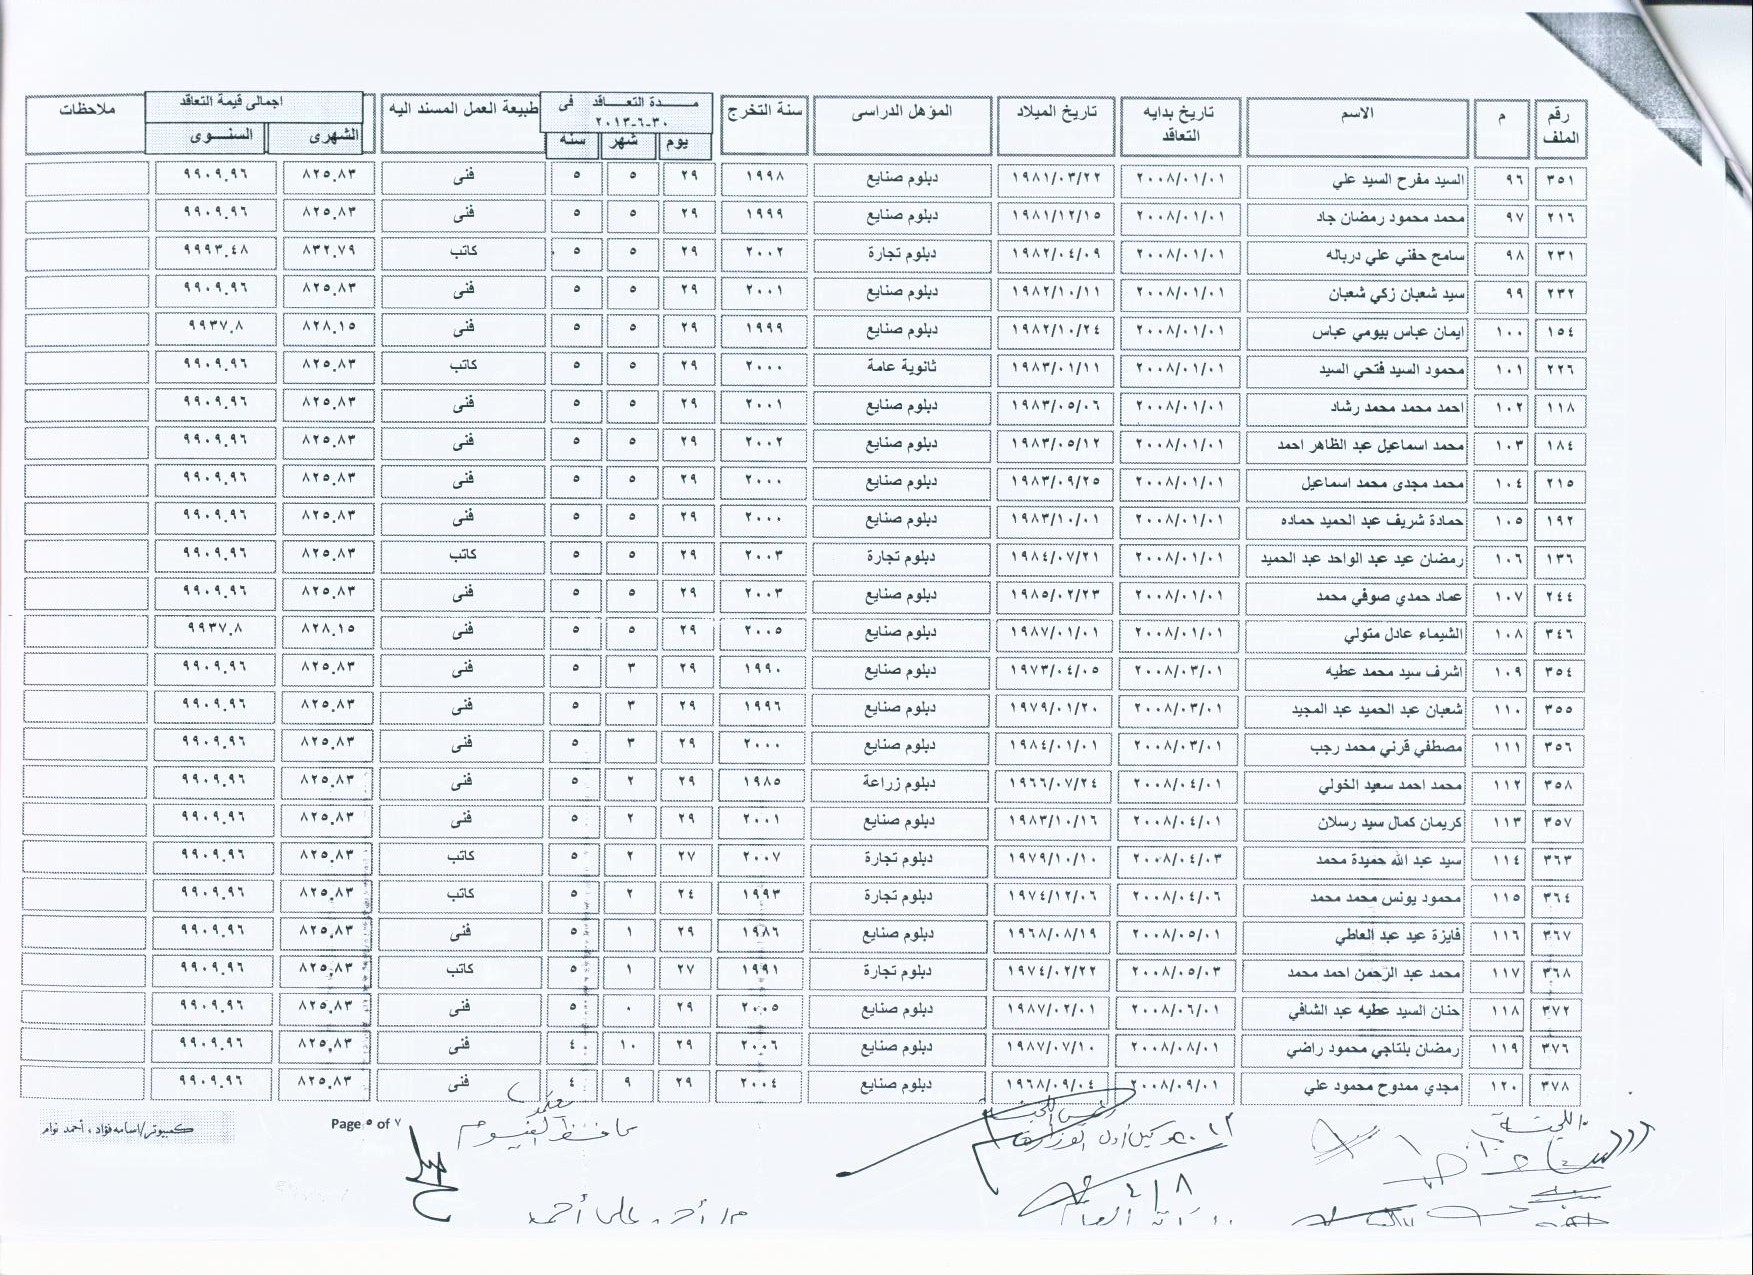 رقم الملف م الاسم تاريخ بدايه التعاقد تاريخ الميلاد المؤهل الدراسى سنة التخرج مـــدة التعـــاقد فى ٣٠-٦-٢٠١٣ يوم شهر سنه طبيعة العمل المسند اليه اجمالى قيمة التعاقد الشهرى السنــوى ملاحظات
٣٥١ ٩٦ السيد مفرح السيد علي ٢٠٠٨/٠١/٠١ ١٩٨١/٠٣/٢٢ دبلوم صنايع ١٩٩٨ ٢٩ ٥ ٥ فنى ٨٢٥.٨٣ ٩٩٠٩.٩٦
٢١٦ ٩٧ محمد محمود رمضان جاد ٢٠٠٨/٠١/٠١ ١٩٨١/١٢/١٥ دبلوم صنايع ١٩٩٩ ٢٩ ٥ ٥ فنى ٨٢٥.٨٣ ٩٩٠٩.٩٦
٢٣١ ٩٨ سامح حفني علي درباله ٢٠٠٨/٠١/٠١ ١٩٨٢/٠٤/٠٩ دبلوم تجارة ٢٠٠٢ ٢٩ ٥ ٥ كاتب ٨٣٢.٧٩ ٩٩٩٣.٤٨
٢٣٢ ٩٩ سيد شعبان زكي شعبان ٢٠٠٨/٠١/٠١ ١٩٨٢/١٠/١١ دبلوم صنايع ٢٠٠١ ٢٩ ٥ ٥ فنى ٨٢٥.٨٣ ٩٩٠٩.٩٦
١٥٤ ١٠٠ ايمان عباس بيومي عباس ٢٠٠٨/٠١/٠١ ١٩٨٢/١٠/٢٤ دبلوم صنايع ١٩٩٩ ٢٩ ٥ ٥ فنى ٨٢٨.١٥ ٩٩٣٧.٨
٢٢٦ ١٠١ محمود السيد فتحي السيد ٢٠٠٨/٠١/٠١ ١٩٨٣/٠١/١١ ثانوية عامة ٢٠٠٠ ٢٩ ٥ ٥ كاتب ٨٢٥.٨٣ ٩٩٠٩.٩٦
١١٨ ١٠٢ احمد محمد محمد رشاد ٢٠٠٨/٠١/٠١ ١٩٨٣/٠٥/٠٦ دبلوم صنايع ٢٠٠١ ٢٩ ٥ ٥ فنى ٨٢٥.٨٣ ٩٩٠٩.٩٦
١٨٤ ١٠٣ محمد اسماعيل عبد الظاهر احمد ٢٠٠٨/٠١/٠١ ١٩٨٣/٠٥/١٢ دبلوم صنايع ٢٠٠٢ ٢٩ ٥ ٥ فنى ٨٢٥.٨٣ ٩٩٠٩.٩٦
٢١٥ ١٠٤ محمد مجدى محمد اسماعيل ٢٠٠٨/٠١/٠١ ١٩٨٣/٠٩/٢٥ دبلوم صنايع ٢٠٠٠ ٢٩ ٥ ٥ فنى ٨٢٥.٨٣ ٩٩٠٩.٩٦
١٩٢ ١٠٥ حمادة شريف عبد الحميد حماده ٢٠٠٨/٠١/٠١ ١٩٨٣/١٠/٠١ دبلوم صنايع ٢٠٠٠ ٢٩ ٥ ٥ فنى ٨٢٥.٨٣ ٩٩٠٩.٩٦
١٣٦ ١٠٦ رمضان عيد عبد الواحد عبد الحميد ٢٠٠٨/٠١/٠١ ١٩٨٤/٠٧/٢١ دبلوم تجارة ٢٠٠٣ ٢٩ ٥ ٥ كاتب ٨٢٥.٨٣ ٩٩٠٩.٩٦
٢٤٤ ١٠٧ عماد حمدي صوفي محمد ٢٠٠٨/٠١/٠١ ١٩٨٥/٠٢/٢٣ دبلوم صنايع ٢٠٠٣ ٢٩ ٥ ٥ فنى ٨٢٥.٨٣ ٩٩٠٩.٩٦
٣٤٦ ١٠٨ الشيماء عادل متولي ٢٠٠٨/٠١/٠١ ١٩٨٧/٠١/٠١ دبلوم صنايع ٢٠٠٥ ٢٩ ٥ ٥ فنى ٨٢٨.١٥ ٩٩٣٧.٨
٣٥٤ ١٠٩ اشرف سيد محمد عطيه ٢٠٠٨/٠٣/٠١ ١٩٧٣/٠٤/٠٥ دبلوم صنايع ١٩٩٠ ٢٩ ٣ ٥ فنى ٨٢٥.٨٣ ٩٩٠٩.٩٦
٣٥٥ ١١٠ شعبان عبد الحميد عبد المجيد ٢٠٠٨/٠٣/٠١ ١٩٧٩/٠١/٢٠ دبلوم صنايع ١٩٩٦ ٢٩ ٣ ٥ فنى ٨٢٥.٨٣ ٩٩٠٩.٩٦
٣٥٦ ١١١ مصطفي قرني محمد رجب ٢٠٠٨/٠٣/٠١ ١٩٨٤/٠١/٠١ دبلوم صنايع ٢٠٠٠ ٢٩ ٣ ٥ فنى ٨٢٥.٨٣ ٩٩٠٩.٩٦
٣٥٨ ١١٢ محمد احمد سعيد الخولي ٢٠٠٨/٠٤/٠١ ١٩٦٦/٠٧/٢٤ دبلوم زراعة ١٩٨٥ ٢٩ ٢ ٥ فنى ٨٢٥.٨٣ ٩٩٠٩.٩٦
٣٥٧ ١١٣ كريمان كمال سيد رسلان ٢٠٠٨/٠٤/٠١ ١٩٨٣/١٠/١٦ دبلوم صنايع ٢٠٠١ ٢٩ ٢ ٥ فنى ٨٢٥.٨٣ ٩٩٠٩.٩٦
٣٦٣ ١١٤ سيد عبد الله حميدة محمد ٢٠٠٨/٠٤/٠٣ ١٩٧٩/١٠/١٠ دبلوم تجارة ٢٠٠٧ ٢٧ ٢ ٥ كاتب ٨٢٥.٨٣ ٩٩٠٩.٩٦
٣٦٤ ١١٥ محمود يونس محمد محمد ٢٠٠٨/٠٤/٠٦ ١٩٧٤/١٢/٠٦ دبلوم تجارة ١٩٩٣ ٢٤ ٢ ٥ كاتب ٨٢٥.٨٣ ٩٩٠٩.٩٦
٣٦٧ ١١٦ فايزة عيد عبد العاطي ٢٠٠٨/٠٥/٠١ ١٩٦٨/٠٨/١٩ دبلوم صنايع ١٩٨٦ ٢٩ ١ ٥ فنى ٨٢٥.٨٣ ٩٩٠٩.٩٦
٣٦٨ ١١٧ محمد عبد الرحمن احمد محمد ٢٠٠٨/٠٥/٠٣ ١٩٧٤/٠٢/٢٢ دبلوم تجارة ١٩٩١ ٢٧ ١ ٥ كاتب ٨٢٥.٨٣ ٩٩٠٩.٩٦
٣٧٢ ١١٨ حنان السيد عطيه عبد الشافي ٢٠٠٨/٠٦/٠١ ١٩٨٧/٠٢/٠١ دبلوم صنايع ٢٠٠٥ ٢٩ ٠ ٥ فنى ٨٢٥.٨٣ ٩٩٠٩.٩٦
٣٧٦ ١١٩ رمضان بلتاجي محمود راضي ٢٠٠٨/٠٨/٠١ ١٩٨٧/٠٧/١٠ دبلوم صنايع ٢٠٠٦ ٢٩ ١٠ ٤ فنى ٨٢٥.٨٣ ٩٩٠٩.٩٦
٣٧٨ ١٢٠ مجدي ممدوح محمود علي ٢٠٠٨/٠٩/٠١ ١٩٦٨/٠٩/٠٤ دبلوم صنايع ٢٠٠٤ ٢٩ ٩ ٤ فنى ٨٢٥.٨٣ ٩٩٠٩.٩٦
اللجنة
وكيل أول الوزارة
معتمد
محافظ الفيوم
Page ٥ of ٧
كمبيوتر/اسامه فؤاد ، أحمد نوام
م/ أحمد على أحمد